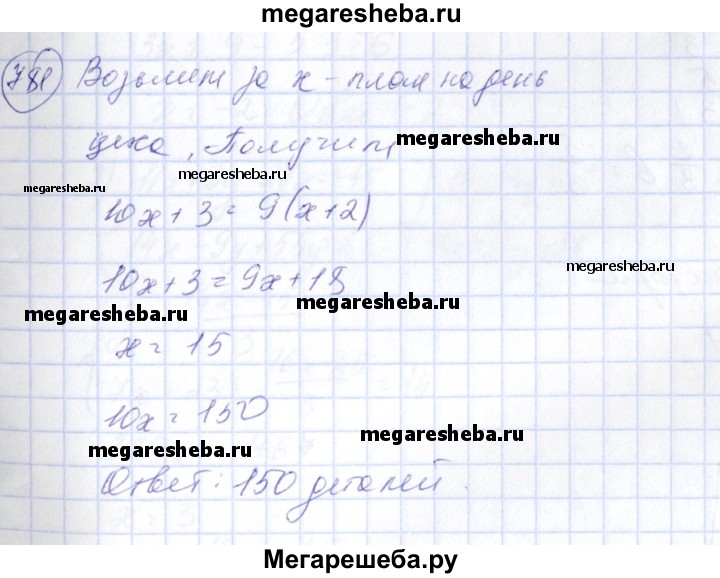 megaresheba.ru
781 Возьмем за x - план на день
цеха, Получим
megaresheba.ru
megaresheba.ru
megaresheba.ru
10x + 3 = 9(x+2)
megaresheba.ru
10x + 3 = 9x + 18
megaresheba.ru
megaresheba.ru
x = 15
10x = 150
megaresheba.ru
megaresheba.ru
Ответ: 150 деталей.
Мегарешеба.ру